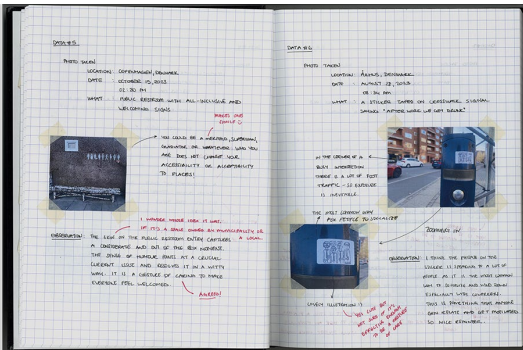 DATA #5
PHOTO TAKEN
LOCATION: COPENHAGEN, DENMARK
DATE: OCTOBER 15, 2023
01:30 PM
WHAT: PUBLIC RESTROOM WITH ALL-INCLUSIVE AND
WELCOMING SIGNS.
MAKES ONE
SMILE :)
YOU COULD BE A MERMAID, SUPERMAN,
GLADIATOR OR WHATEVER. WHO YOU
ARE DOES NOT CHANGE YOUR
ACCESSIBILITY OR ACCEPTABILITY
TO PLACES!
I WONDER WHOSE IDEA IT WAS.
IF IT'S A SPACE OWNED BY MUNICIPALITY OR
A LOCAL.
OBSERVATION: THE SIGN ON THE PUBLIC RESTROOM ENTRY CAPTURES
A CONSIDERATE AND OUT OF THE BOX
THE SENSE OF HUMOUR AT A CRUCIAL
CURRENT ISSUE AND RESOLVES IT IN A WITTY
WAY. IT IS A GESTURE OF CARING TO MAKE
EVERYONE FEEL WELCOMED.
AGREED!
DATA #6
PHOTO TAKEN
LOCATION: ÅRHUS, DENMARK
DATE: AUGUST 18, 2023
WHAT: A STICKER TAPED ON CROSSWALK SIGNAL
SAYING "AFTER WORK WE GET DRUNK"
IN THE CORNER OF A
BUSY INTERSECTION
THERE IS A LOT OF FOOT
TRAFFIC - SO EXPOSURE
IS INEVITABLE.
THE MOST COMMON WAY
PEOPLE TO SOCIALIZE
ZOOMING IN
OBSERVATION: I THINK THE PHRASE ON THE
STICKER IS TO A LOT OF
PEOPLE AS IT IS THE MOST COMMON
WAY TO SOCIALIZE AND WIND DOWN
ESPECIALLY WITH COWORKERS.
THIS IS SOMETHING THAT ANYONE
CAN RELATE AND GET MOTIVATED.
SO NICE REMINDER.
LOVELY ILLUSTRATION :)
YES BUT
NOT SURE IF IT'S
EFFECTIVE ENOUGH
TO BE A GESTURE
OF CARE